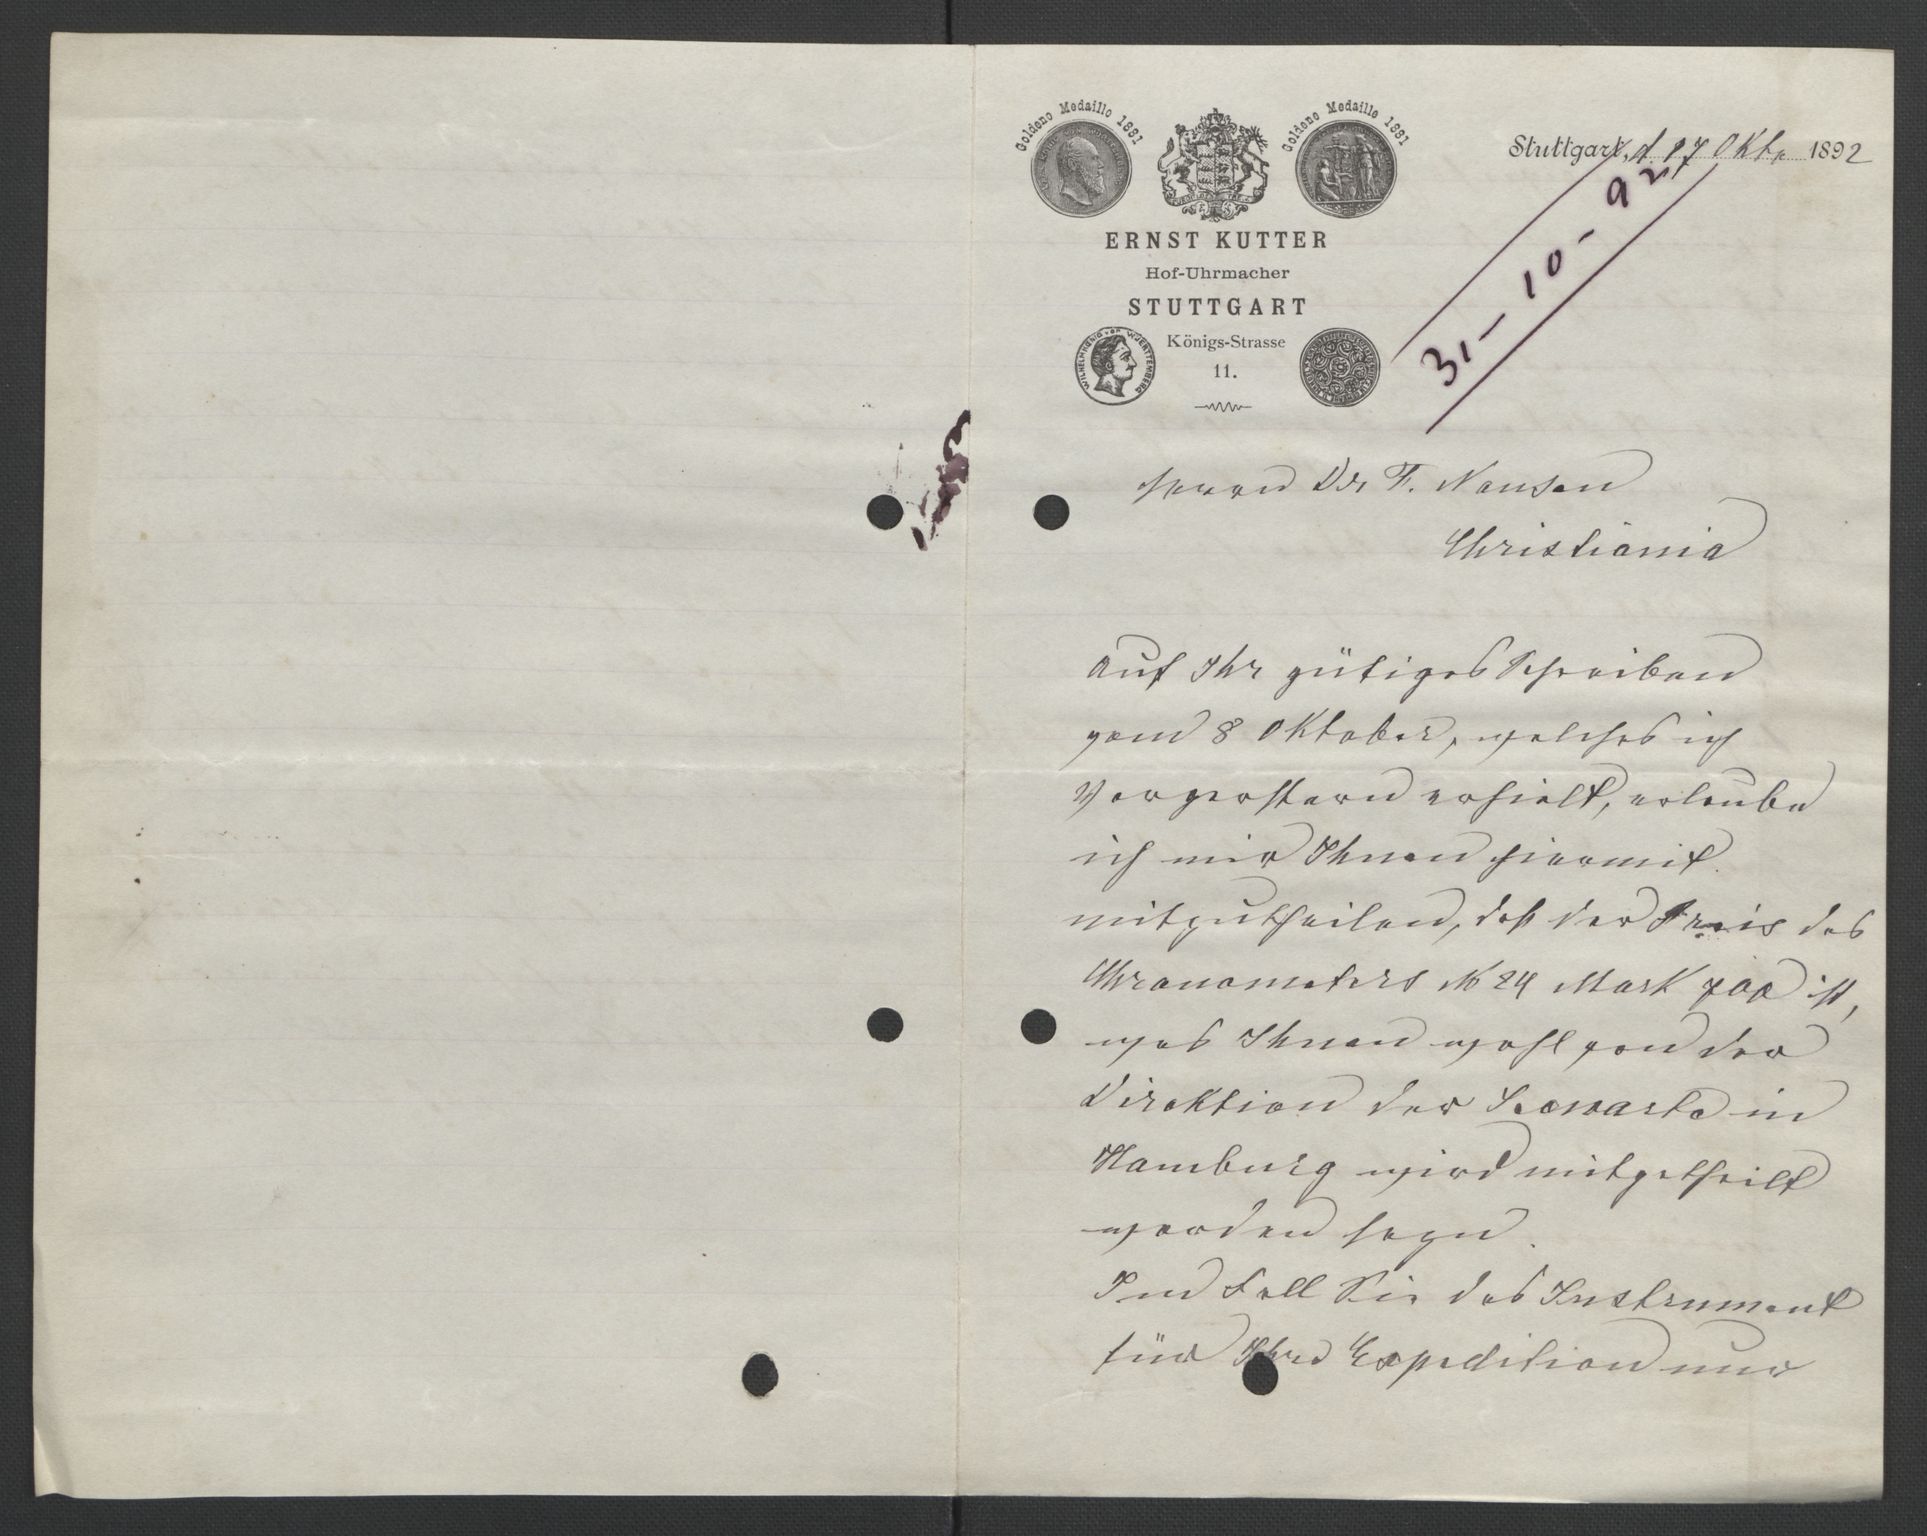 Goldene Medaille 1881
Goldene Medaille 1881
ERNST KUTTER
Hof-Uhrmacher
STUTTGART
WILHELM KOENIG VON WUERTTEMBERG
Königs-Strasse
11.
Stuttgart, d. 17 Oktr 1892
31-10-92
Herrn Dr F. Nansen
Christiania
Auf Ihr gütiges Schreiben
vom 8 Oktober, welches ich
Vorgestern erhielt, erlaube
ich mir Ihnen hiermit
mitzutheilen, daß der Preis des
Chronometers № 24 Mark 700 ist,
was Ihnen wohl von der
Direktion der Seewarte in
Hamburg wird mitgetheilt
worden seyn.
Im Fall Sie das Instrument
für Ihre Expedition nur